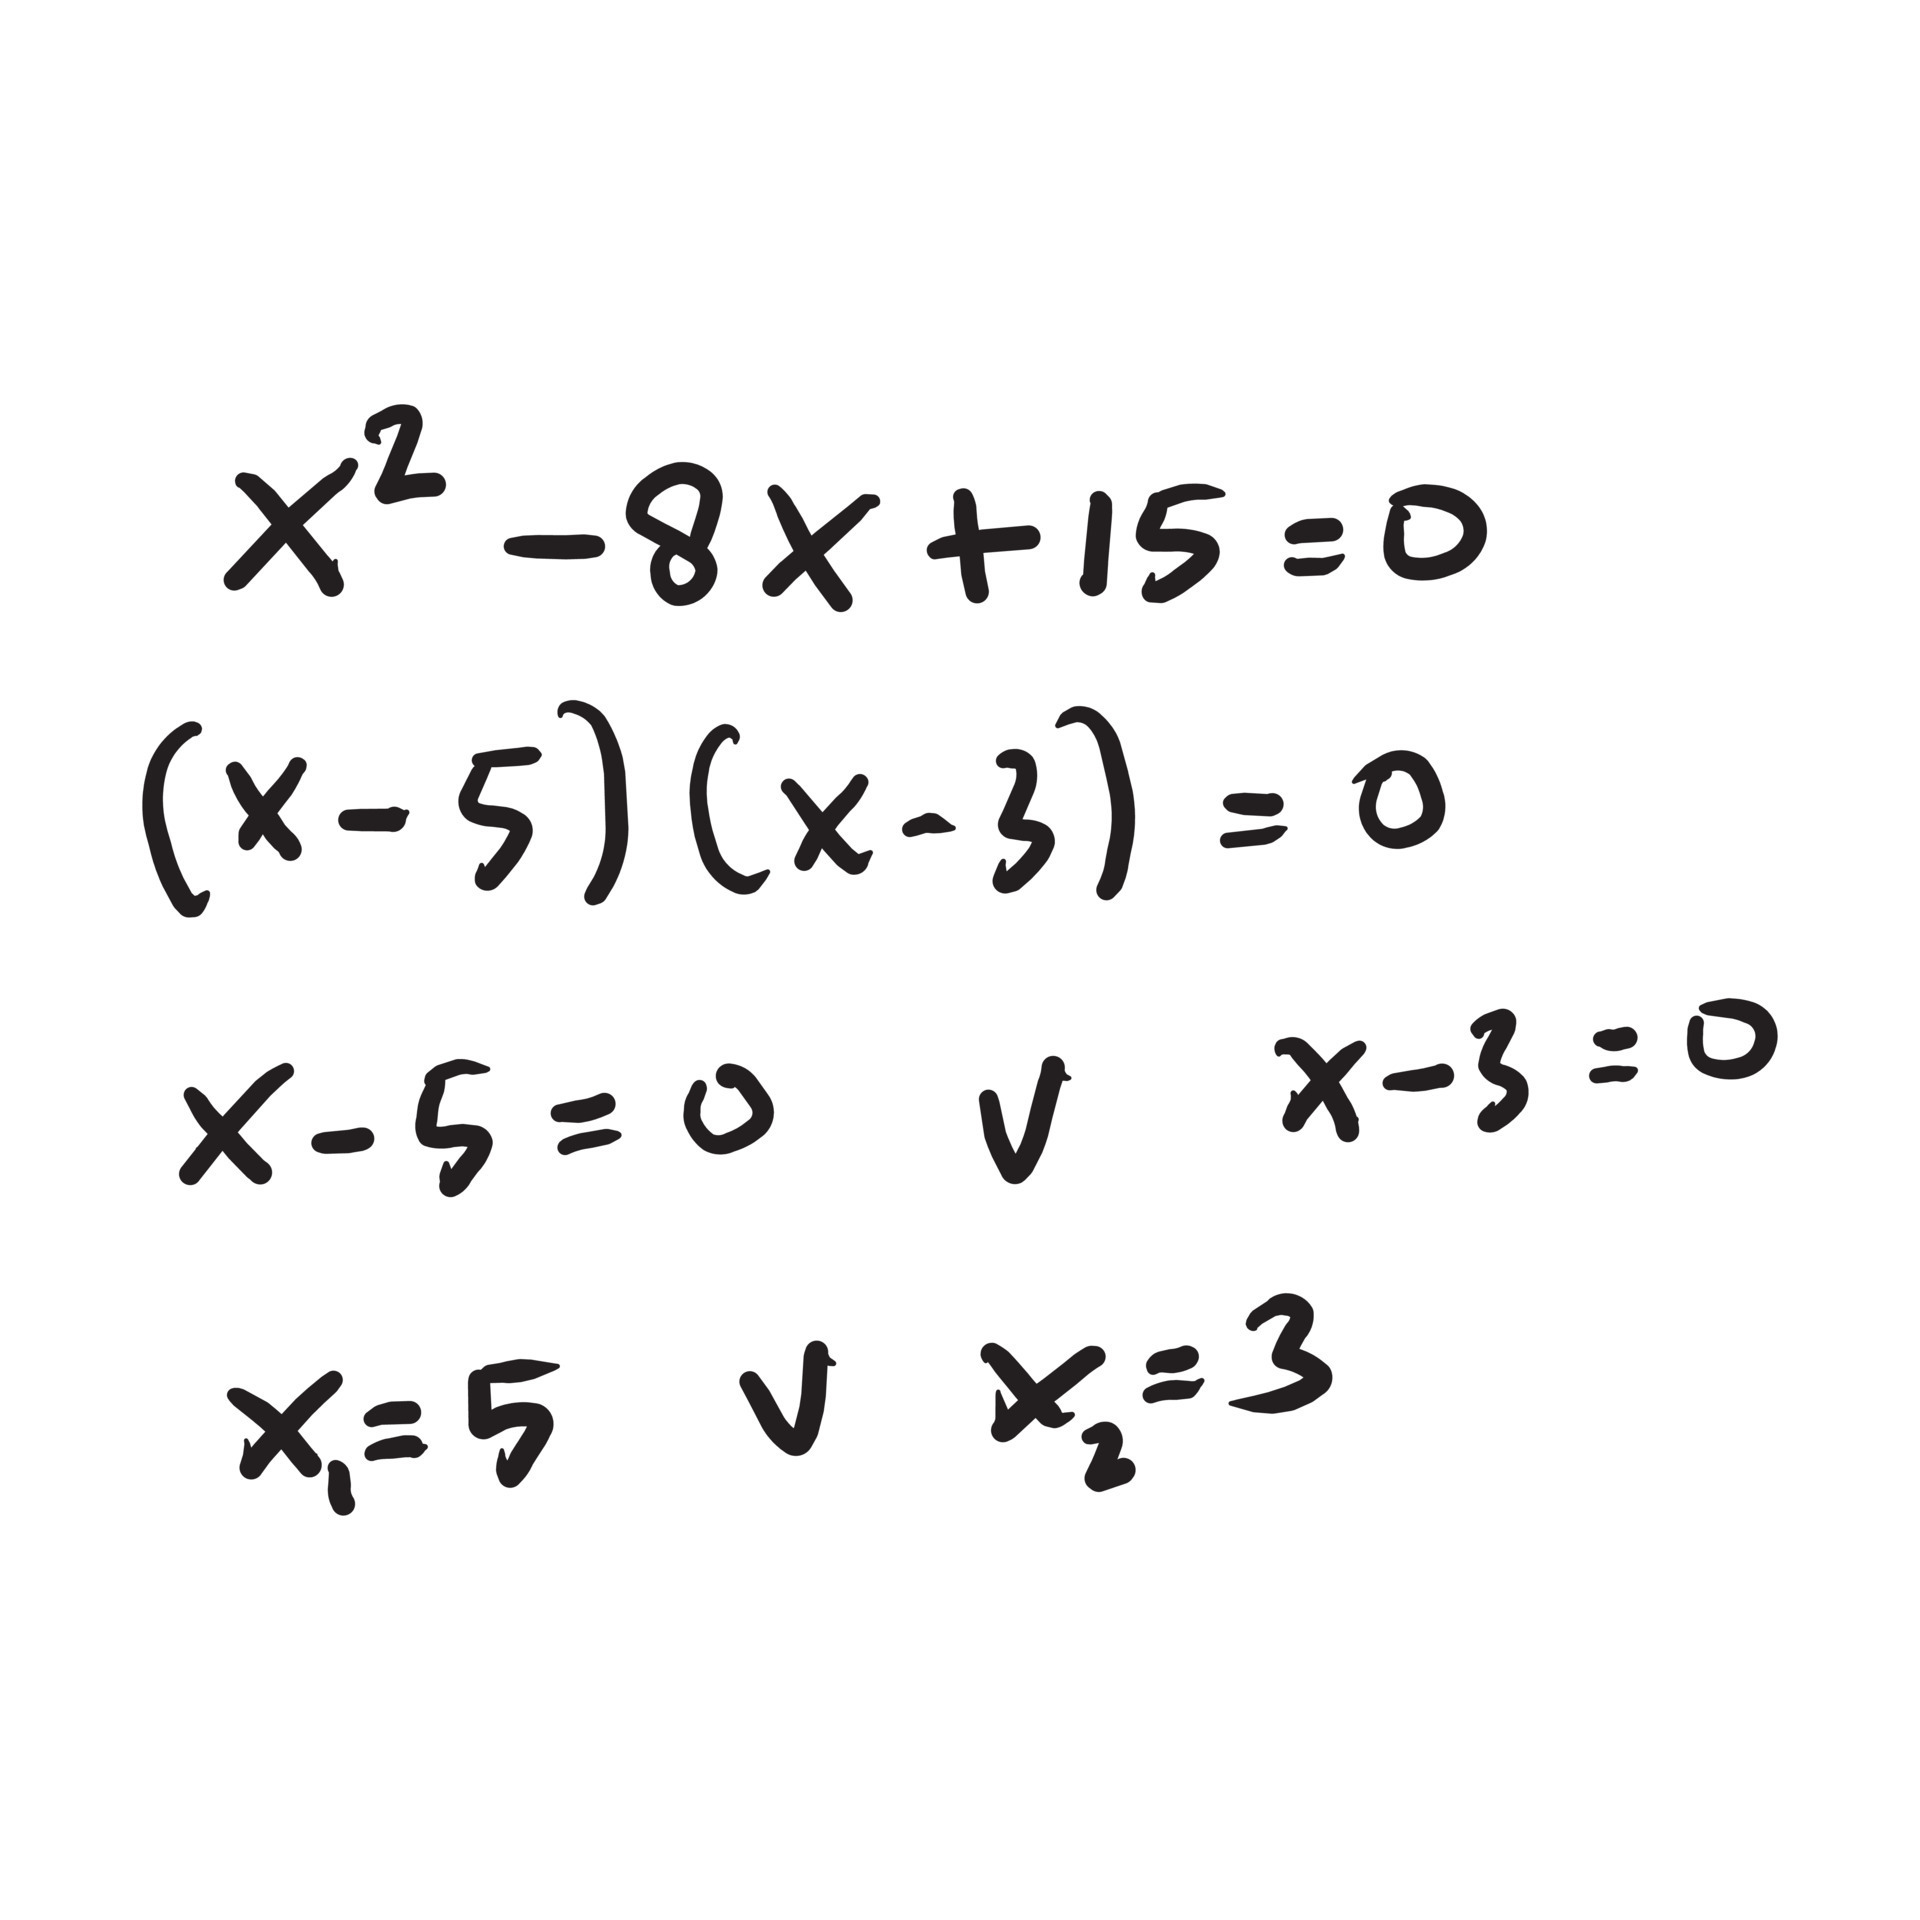 x² - 8x + 15 = 0
(x - 5)(x - 3) = 0
x - 5 = 0 ∨ x - 3 = 0
x₁ = 5 ∨ x₂ = 3